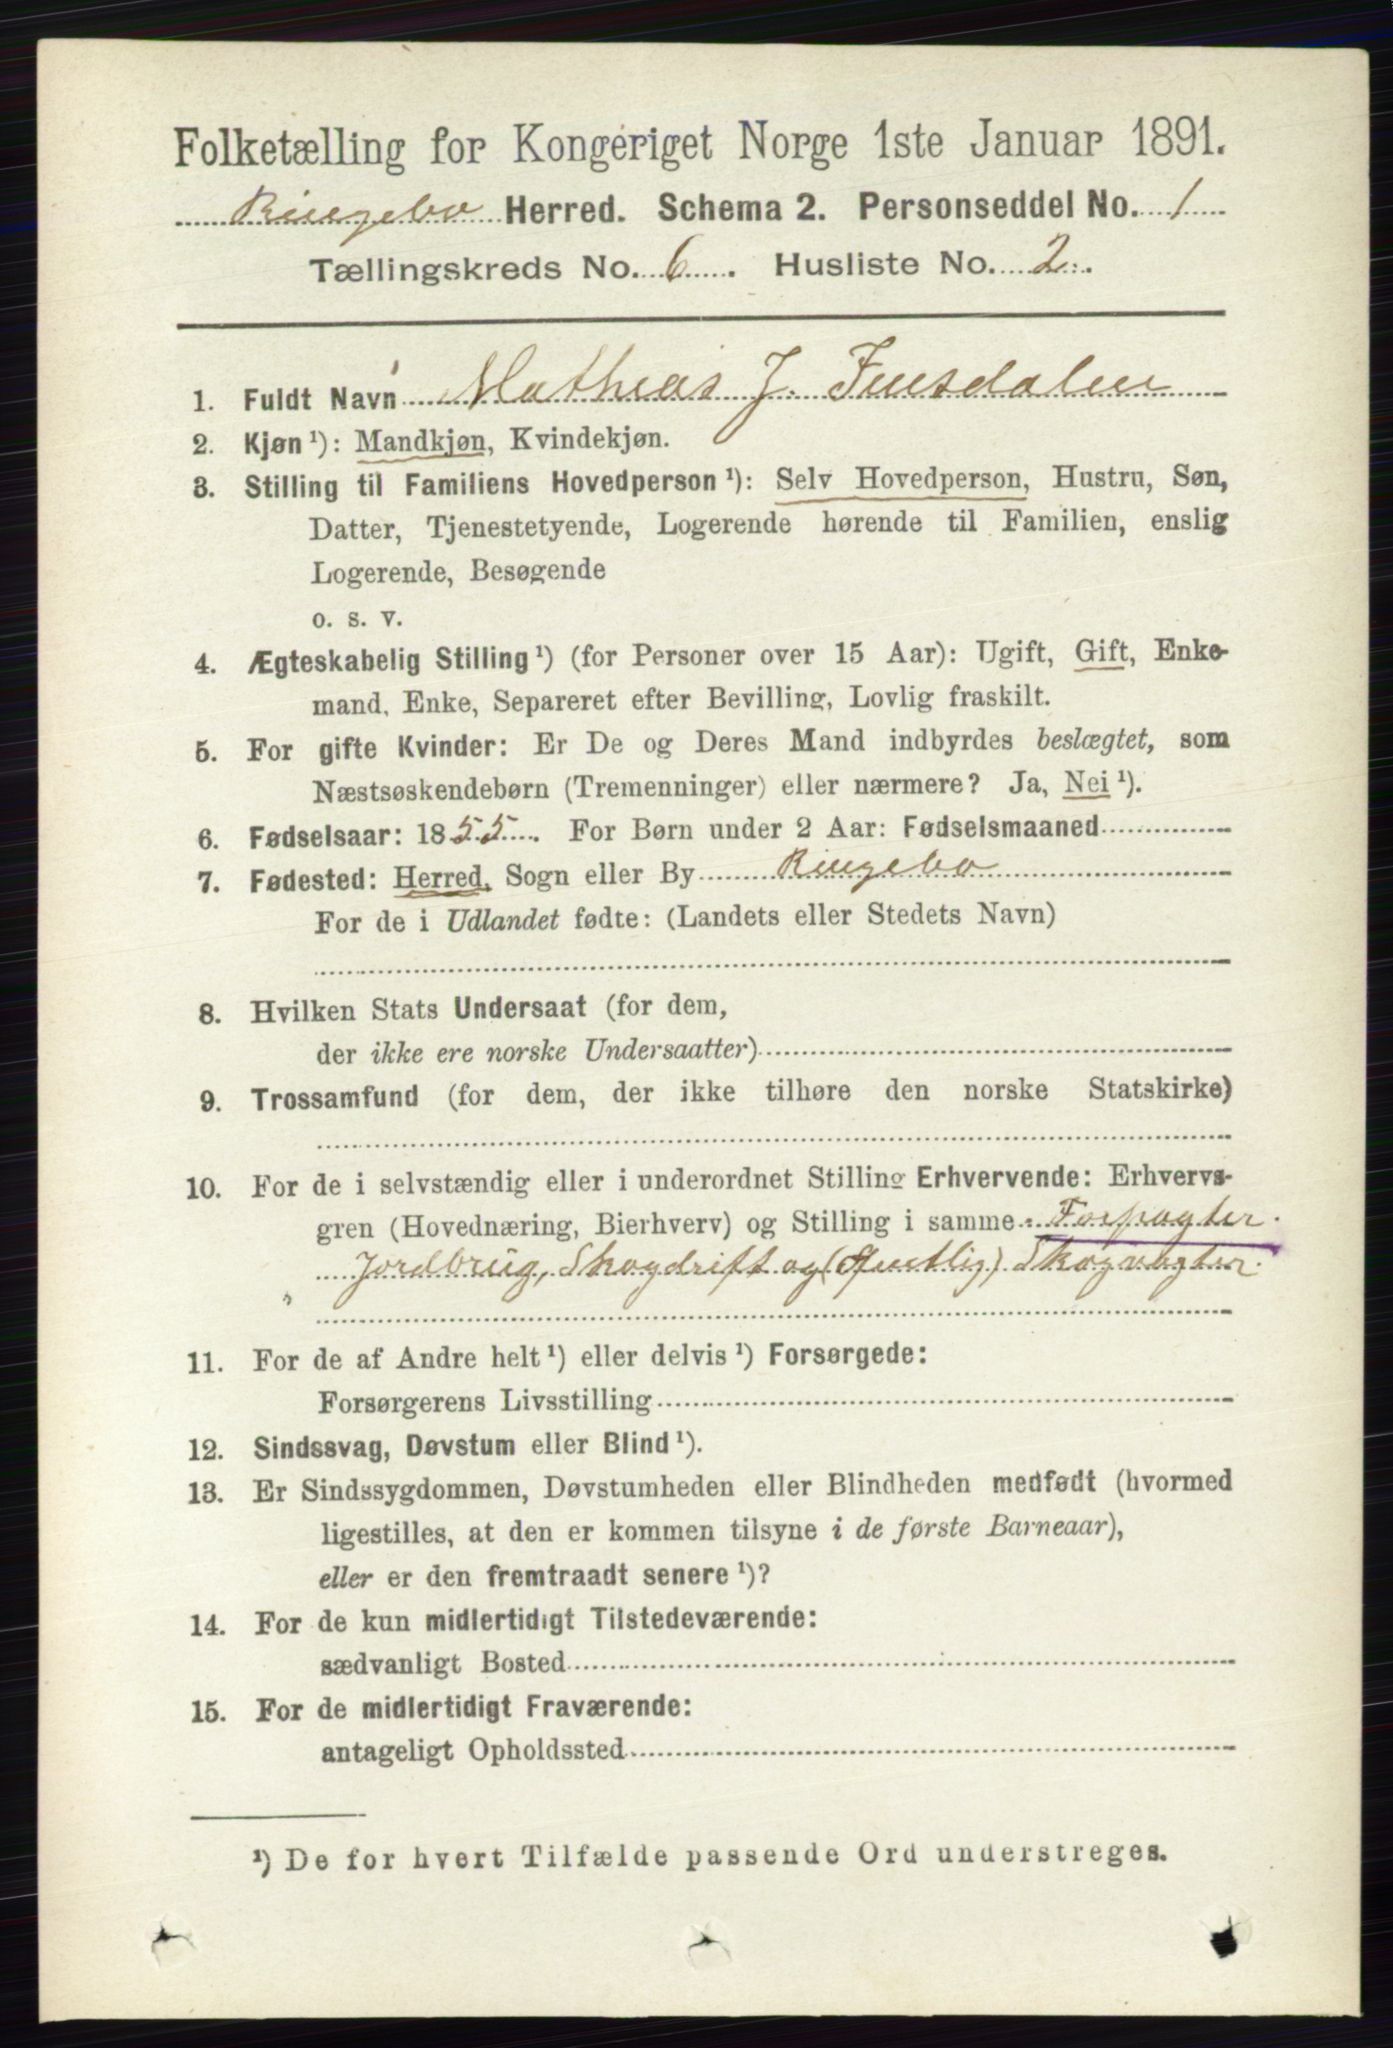 Folketælling for Kongeriget Norge 1ste Januar 1891.
Ringebo Herred. Schema 2. Personseddel No. 1
Tællingskreds No. 6. Husliste No. 2.
1. Fuldt Navn Mathias J. Finsdalen
2. Kjøn ¹): Mandkjøn, Kvindekjøn.
3. Stilling til Familiens Hovedperson ¹): Selv Hovedperson, Hustru, Søn,
Datter, Tjenestetyende, Logerende hørende til Familien, enslig
Logerende, Besøgende
o. s. v.
4. Ægteskabelig Stilling ¹) (for Personer over 15 Aar): Ugift, Gift, Enke-
mand, Enke, Separeret efter Bevilling, Lovlig fraskilt.
5. For gifte Kvinder: Er De og Deres Mand indbyrdes beslægtet, som
Næstsøskendebørn (Tremenninger) eller nærmere? Ja, Nei ¹).
6. Fødselsaar: 1855. For Børn under 2 Aar: Fødselsmaaned
7. Fødested: Herred, Sogn eller By Ringebo
For de i Udlandet fødte: (Landets eller Stedets Navn)
8. Hvilken Stats Undersaat (for dem,
der ikke ere norske Undersaatter)
9. Trossamfund (for dem, der ikke tilhøre den norske Statskirke)
10. For de i selvstændig eller i underordnet Stilling Erhvervende: Erhvervs-
gren (Hovednæring, Bierhverv) og Stilling i samme. Forpagter.
Jordbrug, Skogdrift og (offentlig) Skogvogter.
11. For de af Andre helt ¹) eller delvis ¹) Forsørgede:
Forsørgerens Livsstilling
12. Sindssvag, Døvstum eller Blind ¹).
13. Er Sindssygdommen, Døvstumheden eller Blindheden medfødt (hvormed
ligestilles, at den er kommen tilsyne i de første Barneaar),
eller er den fremtraadt senere ¹)?
14. For de kun midlertidigt Tilstedeværende:
sædvanligt Bosted
15. For de midlertidigt Fraværende:
antageligt Opholdssted
¹) De for hvert Tilfælde passende Ord understreges.